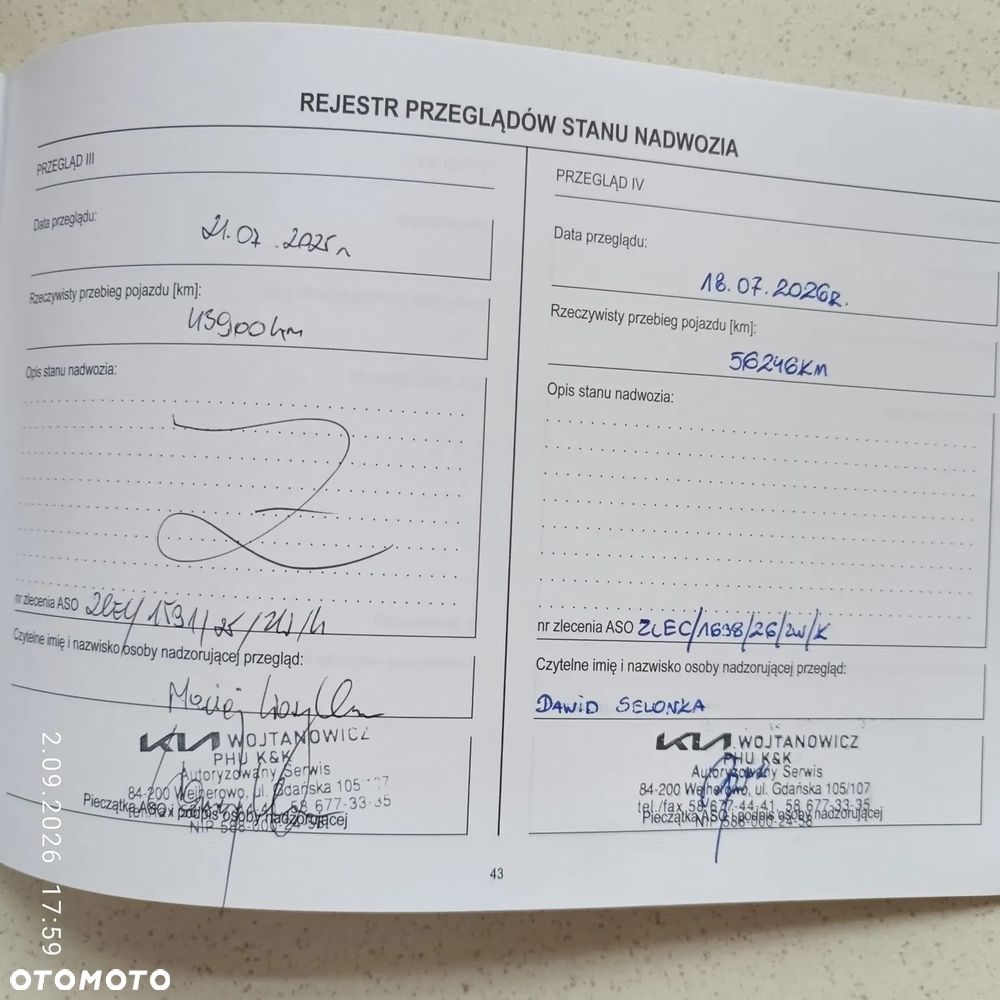 REJESTR PRZEGLĄDÓW STANU NADWOZIA
PRZEGLĄD III
Data przeglądu:
21.07.2025r
Rzeczywisty przebieg pojazdu [km]:
43900km
Opis stanu nadwozia:
nr zlecenia ASO ZLEC/1591/25/ZW/K
Czytelne imię i nazwisko osoby nadzorującej przegląd:
Maciej
KIA WOJTANOWICZ
PHU K&K
Autoryzowany Serwis
84-200 Wejherowo, ul. Gdańska 105
58 677-33-35
Pieczątka ASO i podpis osoby nadzorującej
PRZEGLĄD IV
Data przeglądu:
18.07.2026r.
Rzeczywisty przebieg pojazdu [km]:
56246KM
Opis stanu nadwozia:
nr zlecenia ASO ZLEC/1698/26/ZW/K
Czytelne imię i nazwisko osoby nadzorującej przegląd:
DAWID SELONKA
KIA WOJTANOWICZ
PHU K&K
Autoryzowany Serwis
84-200 Wejherowo, ul. Gdańska 105/107
tel./fax 58 677-44-41, 58 677-33-35
Pieczątka ASO i podpis osoby nadzorującej
43
2.09.2026 17:59
OTOMOTO